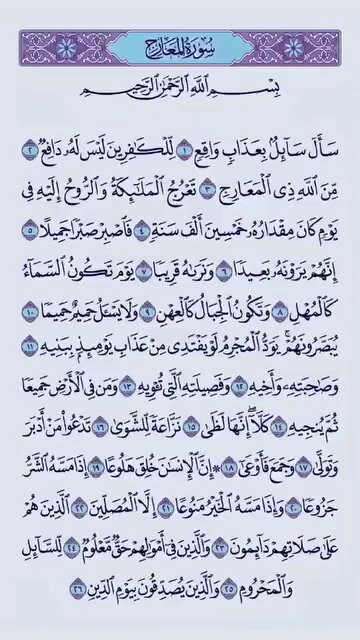 سُورَةُ المَعَارِجِ
بِسْمِ ٱللَّهِ ٱلرَّحْمَٰنِ ٱلرَّحِيمِ
سَأَلَ سَآئِلٌۢ بِعَذَابٖ وَاقِعٖ ١ لِّلۡكَٰفِرِينَ لَيۡسَ لَهُۥ دَافِعٞ ٢
مِّنَ ٱللَّهِ ذِي ٱلۡمَعَارِجِ ٣ تَعۡرُجُ ٱلۡمَلَٰٓئِكَةُ وَٱلرُّوحُ إِلَيۡهِ فِي
يَوۡمٖ كَانَ مِقۡدَارُهُۥ خَمۡسِينَ أَلۡفَ سَنَةٖ ٤ فَٱصۡبِرۡ صَبۡرٗا جَمِيلًا ٥
إِنَّهُمۡ يَرَوۡنَهُۥ بَعِيدٗا ٦ وَنَرَىٰهُ قَرِيبٗا ٧ يَوۡمَ تَكُونُ ٱلسَّمَآءُ
كَٱلۡمُهۡلِ ٨ وَتَكُونُ ٱلۡجِبَالُ كَٱلۡعِهۡنِ ٩ وَلَا يَسۡـَٔلُ حَمِيمٌ حَمِيمٗا ١٠
يُبَصَّرُونَهُمۡۚ يَوَدُّ ٱلۡمُجۡرِمُ لَوۡ يَفۡتَدِي مِنۡ عَذَابِ يَوۡمِئِذِۭ بِبَنِيهِ ١١
وَصَٰحِبَتِهِۦ وَأَخِيهِ ١٢ وَفَصِيلَتِهِ ٱلَّتِي تُـٔۡوِيهِ ١٣ وَمَن فِي ٱلۡأَرۡضِ جَمِيعٗا
ثُمَّ يُنجِيهِ ١٤ كَلَّآۖ إِنَّهَا لَظَىٰ ١٥ نَزَّاعَةٗ لِّلشَّوَىٰ ١٦ تَدۡعُواْ مَنۡ أَدۡبَرَ
وَتَوَلَّىٰ ١٧ وَجَمَعَ فَأَوۡعَىٰٓ ١٨ ۞إِنَّ ٱلۡإِنسَٰنَ خُلِقَ هَلُوعًا ١٩ إِذَا مَسَّهُ ٱلشَّرُّ
جَزُوعٗا ٢٠ وَإِذَا مَسَّهُ ٱلۡخَيۡرُ مَنُوعًا ٢١ إِلَّا ٱلۡمُصَلِّينَ ٢٢ ٱلَّذِينَ هُمۡ
عَلَىٰ صَلَاتِهِمۡ دَآئِمُونَ ٢٣ وَٱلَّذِينَ فِيٓ أَمۡوَٰلِهِمۡ حَقّٞ مَّعۡلُومٞ ٢٤ لِّلسَّآئِلِ
وَٱلۡمَحۡرُومِ ٢٥ وَٱلَّذِينَ يُصَدِّقُونَ بِيَوۡمِ ٱلدِّينِ ٢٦